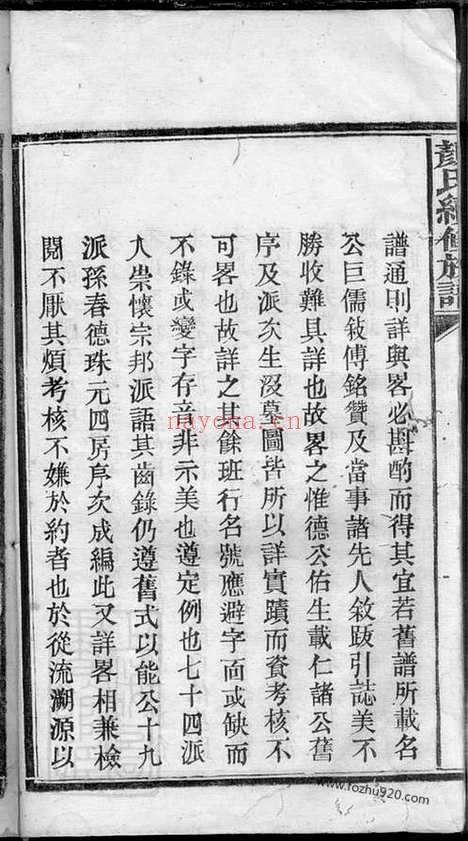 顏氏續修族譜
譜通則詳與畧必斟酌而得其宜若舊譜所載名
公巨儒敍傅銘贊及當事諸先人敘跋引誌美不
勝收難具詳也故畧之惟德公佑生載仁諸公舊
序及派次生沒墓圖皆所以詳實蹟而資考核不
可畧也故詳之其餘班行名號應避字面或缺而
不錄或變字存音非示美也遵定例也七十四派
人崇懷宗邦派語其齒錄仍遵舊式以能公十九
派孫春德珠元四房序次成編此又詳畧相兼檢
閱不厭其煩考核不嫌於約者也於從流溯源以
nayona.cn
www.fozhu920.com